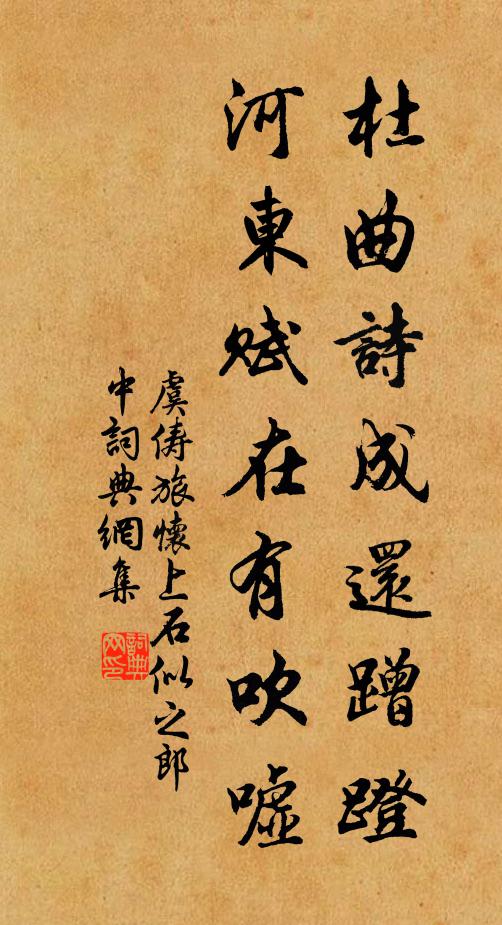 杜曲詩成還蹭蹬
河東賦在有吹噓
虞儔旅懷上石似之郎
中詞典網集
詞典網印